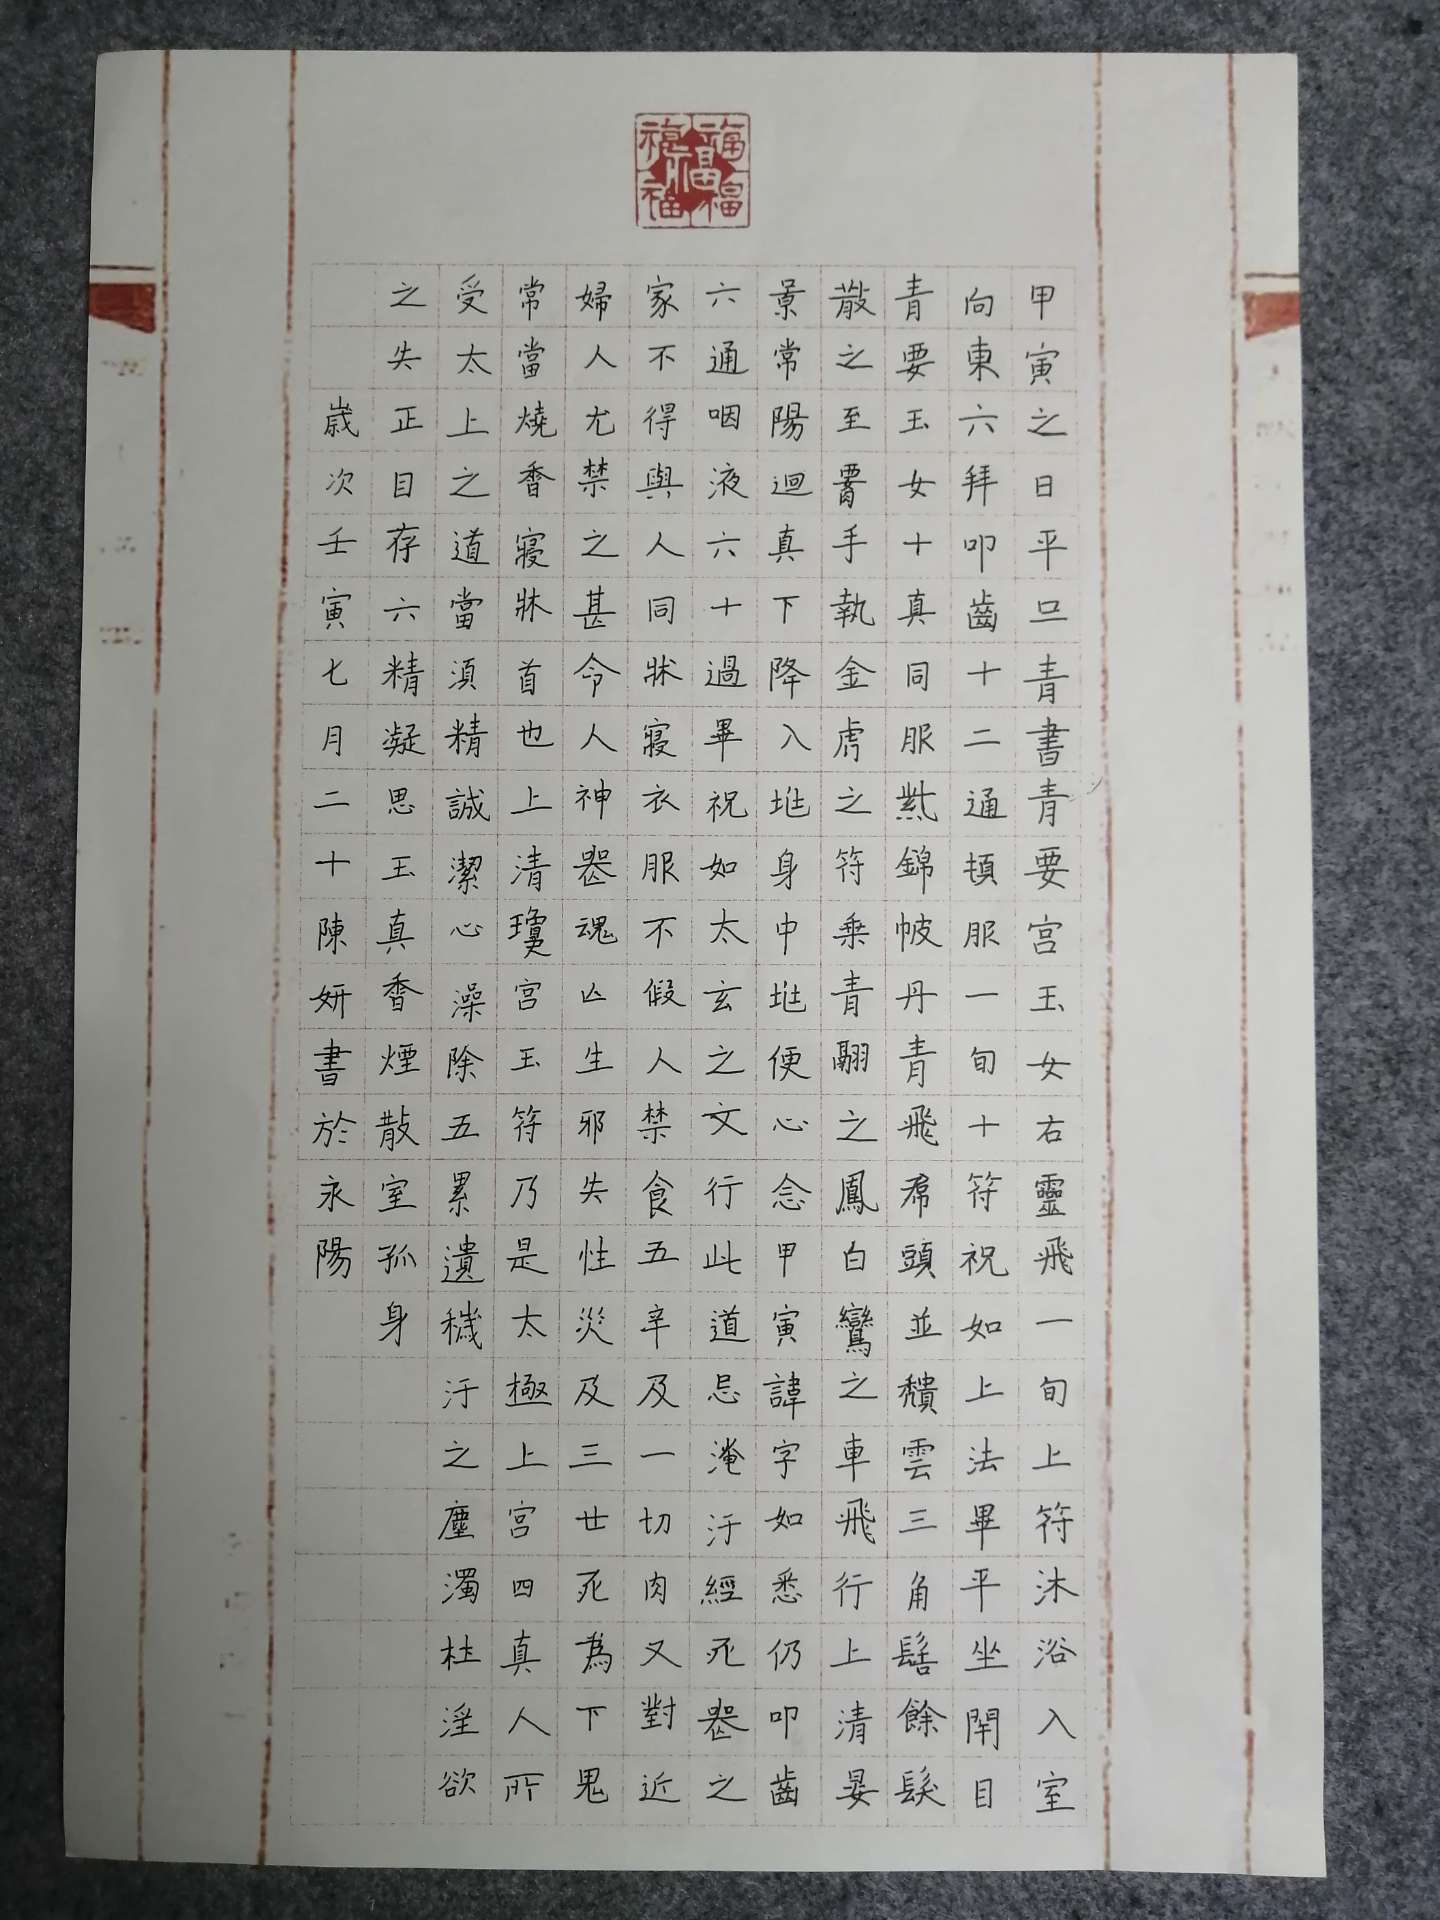 福福福福福
甲寅之日平旦青書青要宫玉女右靈飛一旬上符沐浴入室
向東六拜叩齒十二通頓服一旬十符祝如上法畢平坐閉目
青要玉女十真同服紫錦帔丹青飛帬頭並頽雲三角髻餘髮
散之至䙅手執金虎之符乘青翮之鳳白鸞之車飛行上清晏
景常陽迴真下降入垗身中垗便心念甲寅諱字如悉仍叩齒
六通咽液六十過畢祝如太玄之文行此道忌淹汙經死喪之
家不得與人同牀寢衣服不假人禁食五辛及一切肉又對近
婦人尤禁之甚令人神喪魂亡生邪失性災及三世死為下鬼
常當燒香寢牀首也上清瓊宫玉符乃是太極上宫四真人所
受太上之道當須精誠潔心澡除五累遺穢汙之塵濁杜淫欲
之失正目存六精凝思玉真香煙散室孤身
歲次壬寅七月二十陳妍書於永陽